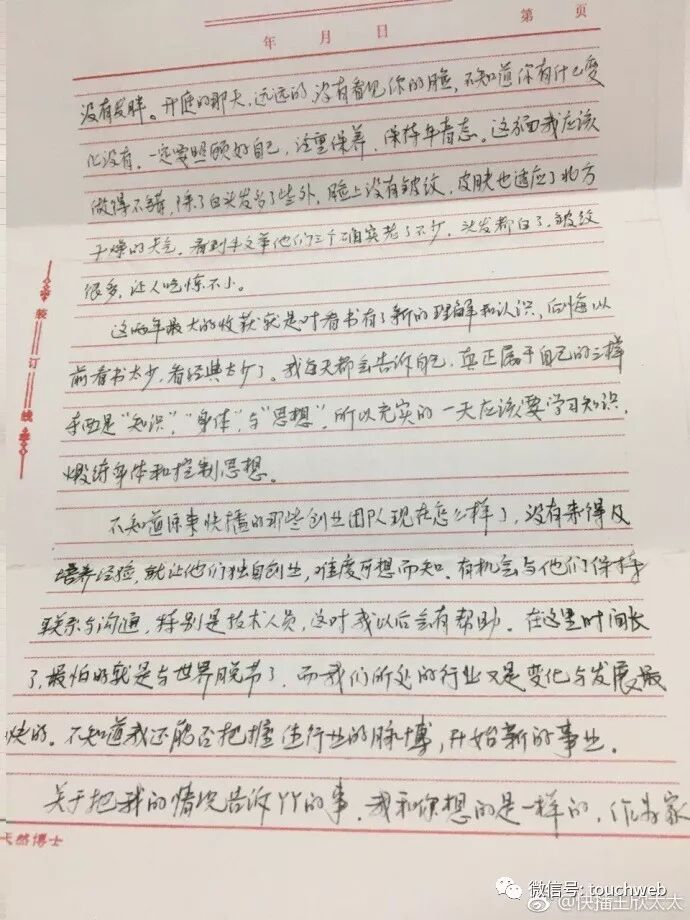 第 页
年 月 日
没有发胖。开庭的那天,远远的没有看见你的脸,不知道你有什么变
化没有。一定要照顾好自己,注重保养,保持年青态。这方面我应该
做得不错,除了白头发多了些外,脸上没有皱纹,皮肤也适应了北方
干燥的天气。看到牛文举他们三个确实老了不少,头发都白了,皱纹
很多,让人吃惊不小。
这两年最大的收获就是对看书有了新的理解和认识,后悔以
前看书太少,看经典太少了。我每天都会告诉自己,真正属于自己的三样
东西是“知识”,“身体”,与“思想”。所以充实的一天应该要学习知识,
煅练身体和控制思想。
不知道原来快播的那些创业团队现在怎么样了,没有来得及
培养经验,就让他们独自创业,难度可想而知。有机会与他们保持
联系与沟通,特别是技术人员,这对我以后会有帮助。在这里时间长
了,最怕的就是与世界脱节了,而我们所处的行业又是变化与发展最
快的。不知道我还能否把握住行业的脉博,开始新的事业。
关于把我的情况告诉丫丫的事,我和你想的是一样的,作为家
装订线
天然博士
微信号: touchweb
@快播王欣太太